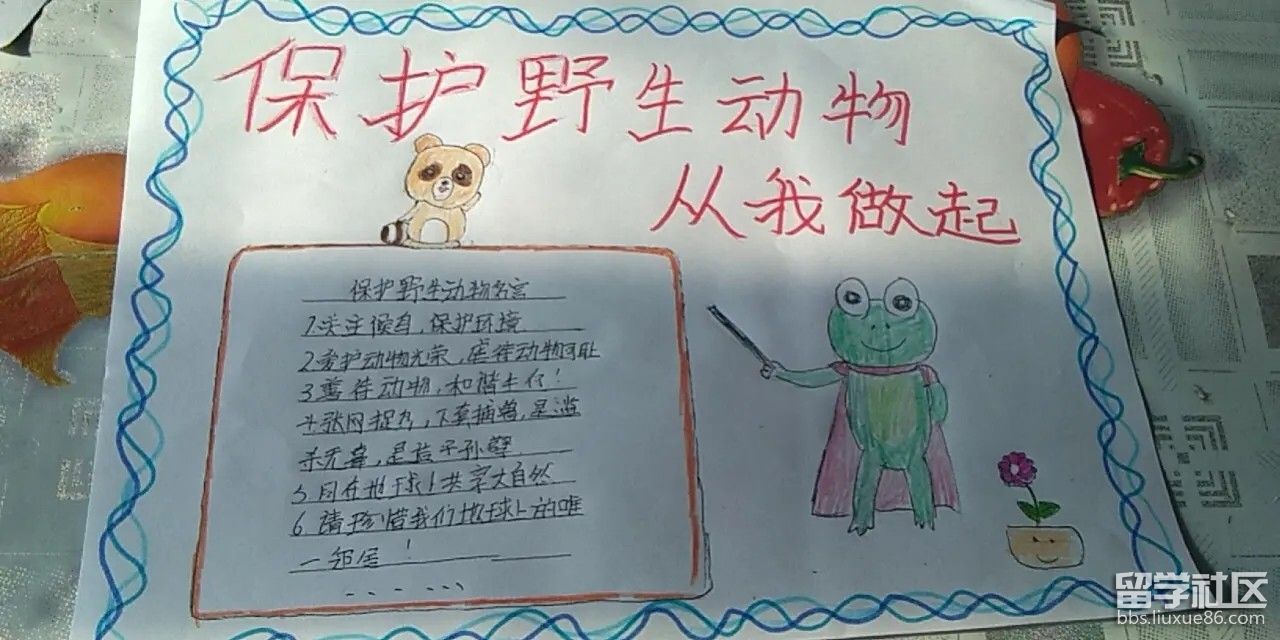 保护野生动物
从我做起
保护野生动物名言
1.关注候鸟,保护环境
2.爱护动物光荣,虐待动物可耻
3.善待动物,和谐生存!
4.张网捉鸟,下套捕兽,是滥
杀无辜,是造子孙孽
5.同在地球上共享大自然
6.请珍惜我们地球上的唯
一邻居!
......
留学社区
bbs.liuxue86.com